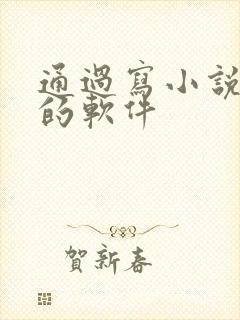 通過寫小說
的軟件
賀新春